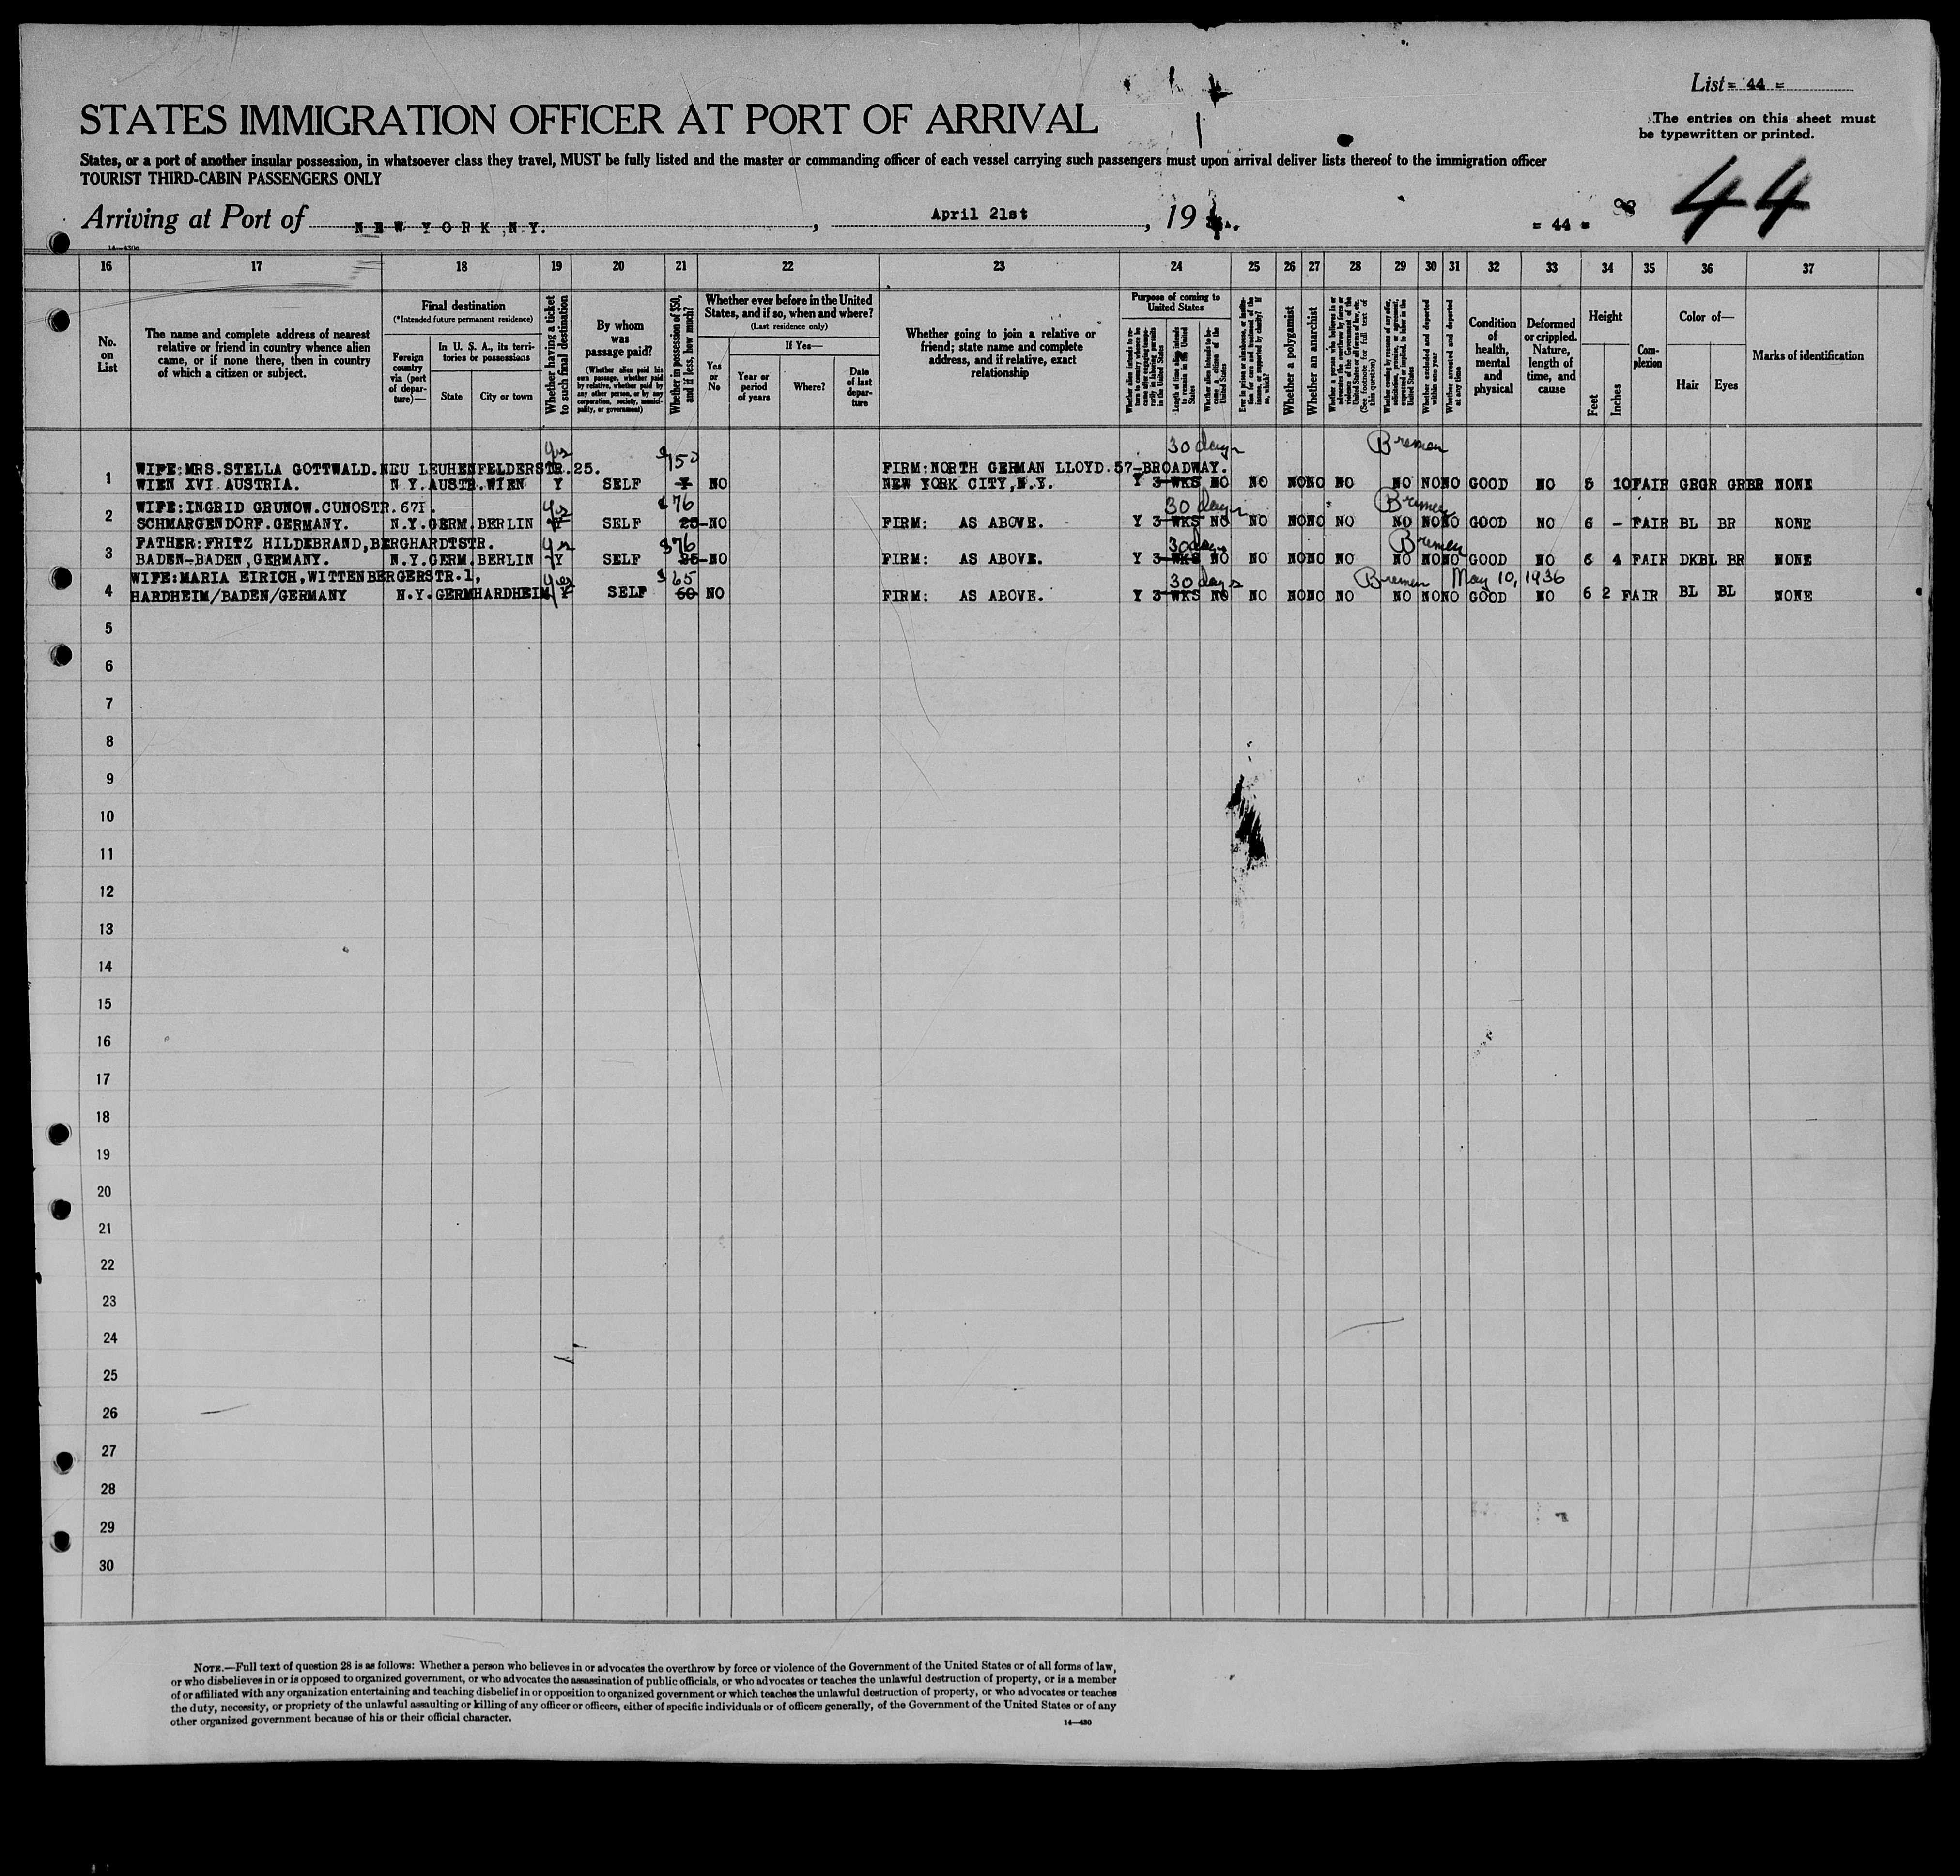 List = 44 =
STATES IMMIGRATION OFFICER AT PORT OF ARRIVAL
The entries on this sheet must
be typewritten or printed.
States, or a port of another insular possession, in whatsoever class they travel, MUST be fully listed and the master or commanding officer of each vessel carrying such passengers must upon arrival deliver lists thereof to the immigration officer
TOURIST THIRD-CABIN PASSENGERS ONLY
44
Arriving at Port of NEW YORK, N.Y., April 21st, 19
= 44 =
14—430a
16 17 18 19 20 21 22 23 24 25 26 27 28 29 30 31 32 33 34 35 36 37
No. on List
The name and complete address of nearest relative or friend in country whence alien came, or if none there, then in country of which a citizen or subject.
Final destination
(*Intended future permanent residence)
Foreign country via (port of departure)—
In U. S. A., its territories or possessions
State
City or town
Whether having a ticket to such final destination
By whom was passage paid?
(Whether alien paid his own passage, whether paid by relative, whether paid by any other person, or by any corporation, society, municipality, or government)
Whether in possession of $50, and if less, how much?
Whether ever before in the United States, and if so, when and where?
(Last residence only)
Yes or No
If Yes—
Year or period of years
Where?
Date of last departure
Whether going to join a relative or friend; state name and complete address, and if relative, exact relationship
Purpose of coming to United States
Whether alien intends to return to country whence he came after engaging temporarily in laboring pursuits in the United States
Length of time alien intends to remain in the United States
Whether alien intends to become a citizen of the United States
Ever in prison or almshouse, or institution for care and treatment of the insane, or supported by charity? If so, which?
Whether a polygamist
Whether an anarchist
Whether a person who believes in or advocates the overthrow by force or violence of the Government of the United States or all forms of law, etc. (See footnote for full text of this question)
Whether coming by reason of any offer, solicitation, promise, or agreement, expressed or implied, to labor in the United States
Whether excluded and deported within one year
Whether arrested and deported at any time
Condition of health, mental and physical
Deformed or crippled. Nature, length of time, and cause
Height
Feet
Inches
Complexion
Color of—
Hair
Eyes
Marks of identification
yes $150 30 days Bremen
WIFE:MRS.STELLA GOTTWALD.NEU LEUHENFELDERSTR.25. FIRM:NORTH GERMAN LLOYD.57-BROADWAY.
1 WIEN XVI AUSTRIA. N Y.AUSTR.WIEN Y SELF Y NO NEW YORK CITY,N.Y. Y 3 WKS NO NO NO NO NO NO NO NO GOOD NO 5 10 FAIR GRGR GRBR NONE
WIFE:INGRID GRUNOW.CUNOSTR.671. yes $76 30 days Bremen
2 SCHMARGENDORF.GERMANY. N.Y.GERM.BERLIN Y SELF 25 NO FIRM: AS ABOVE. Y 3 WKS NO NO NO NO NO NO NO NO GOOD NO 6 - FAIR BL BR NONE
FATHER:FRITZ HILDEBRAND,BERGHARDTSTR. yes $76 30 days Bremen
3 BADEN-BADEN,GERMANY. N.Y.GERM.BERLIN Y SELF 25 NO FIRM: AS ABOVE. Y 3 WKS NO NO NO NO NO NO NO NO GOOD NO 6 4 FAIR DKBL BR NONE
WIFE:MARIA EIRICH,WITTENBERGERSTR.1, yes $65 30 days Bremen May 10, 1936
4 HARDHEIM/BADEN/GERMANY N.Y.GERMHARDHEIM Y SELF 60 NO FIRM: AS ABOVE. Y 3 WKS NO NO NO NO NO NO NO NO GOOD NO 6 2 FAIR BL BL NONE
5
6
7
8
9
10
11
12
13
14
15
16
17
18
19
20
21
22
23
24
25
26
27
28
29
30
NOTE.—Full text of question 28 is as follows: Whether a person who believes in or advocates the overthrow by force or violence of the Government of the United States or of all forms of law,
or who disbelieves in or is opposed to organized government, or who advocates the assassination of public officials, or who advocates or teaches the unlawful destruction of property, or is a member
of or affiliated with any organization entertaining and teaching disbelief in or opposition to organized government or which teaches the unlawful destruction of property, or who advocates or teaches
the duty, necessity, or propriety of the unlawful assaulting or killing of any officer or officers, either of specific individuals or of officers generally, of the Government of the United States or of any
other organized government because of his or their official character.
14—430